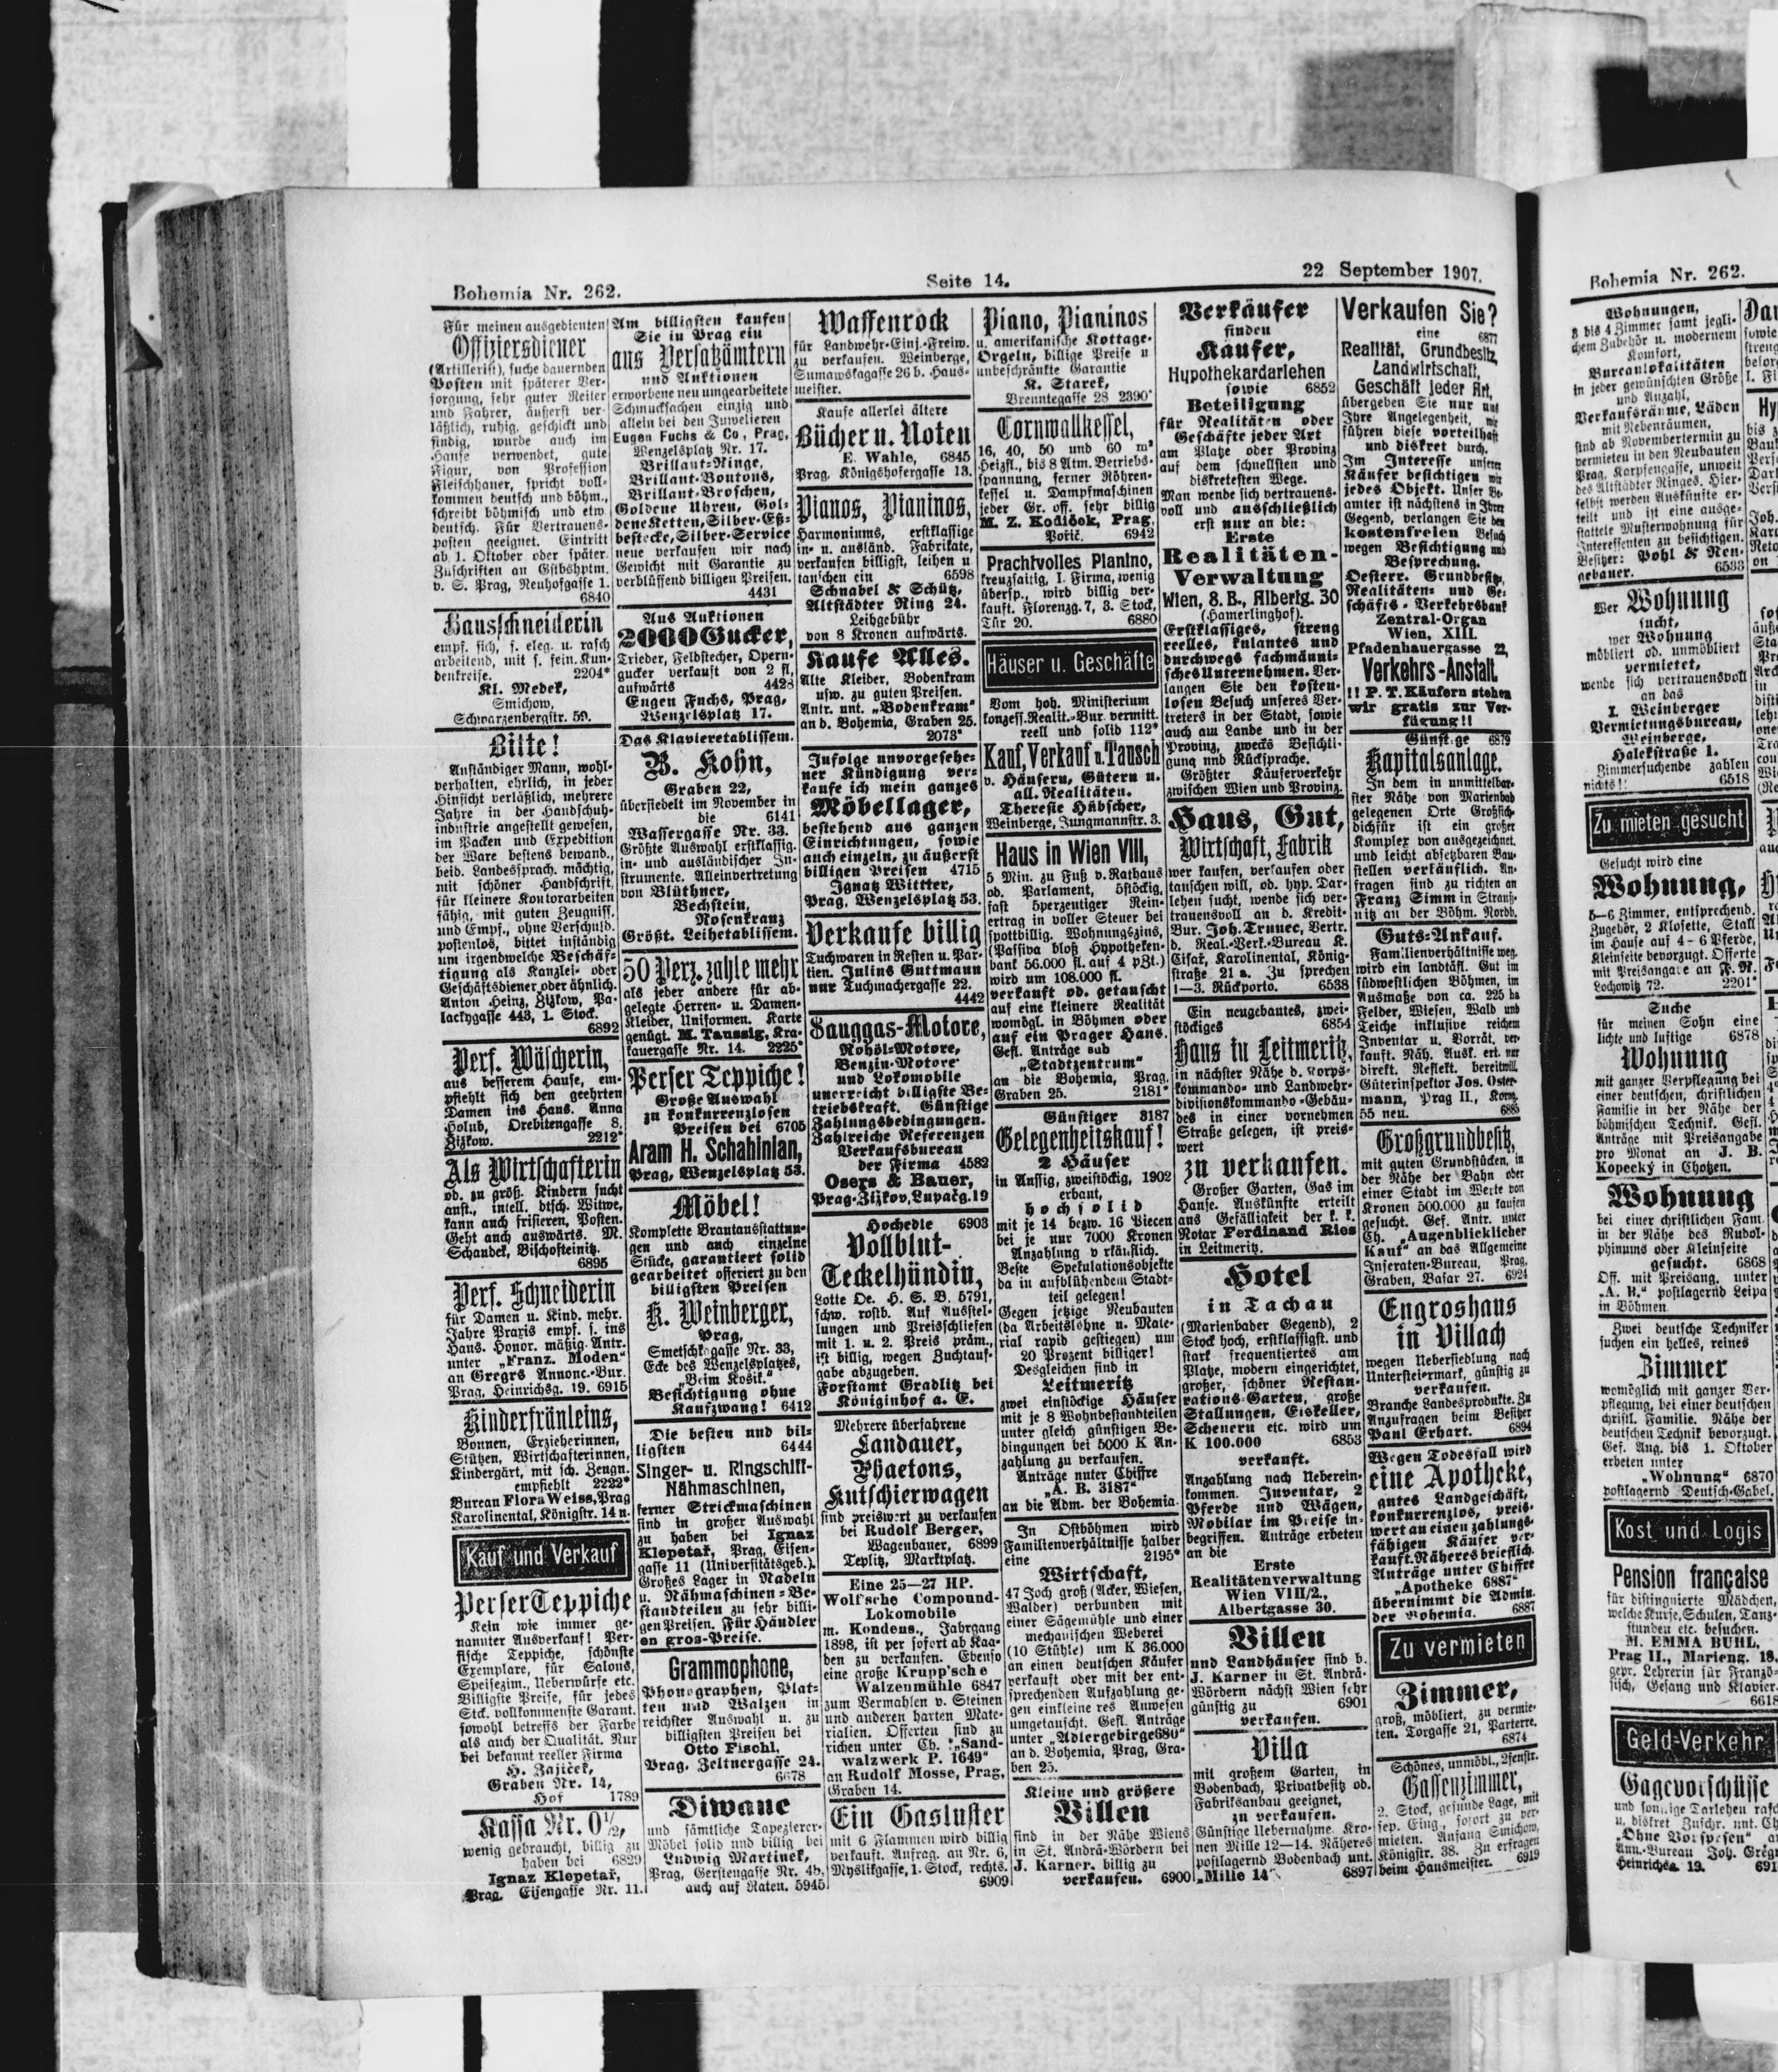 Bohemia Nr. 262.
Seite 14.
22 September 1907.
Für meinen ausgedienten
Offiziersdiener
(Artillerist), suche dauernden
Posten mit späterer Ver-
sorgung, sehr guter Reiter
und Fahrer, äußerst ver-
läßlich, ruhig, geschickt und
findig, wurde auch im
Hause verwendet, gute
Figur, von Profession
Fleischhauer, spricht voll-
kommen deutsch und böhm.,
schreibt böhmisch und etw.
deutsch. Für Vertrauens-
posten geeignet. Eintritt
ab 1. Oktober oder später.
Zuschriften an Gstbshptm.
v. S. Prag, Neuhofgasse 1.
6840
Hausschneiderin
empf. sich, f. eleg. u. rasch
arbeitend, mit f. fein. Kun-
denkreise. 2204*
Kl. Medek,
Smichow,
Schwarzenbergstr. 59.
Bitte!
Anständiger Mann, wohl-
verhalten, ehrlich, in jeder
Hinsicht verläßlich, mehrere
Jahre in der Handschuh-
industrie angestellt gewesen,
im Packen und Expedition
der Ware bestens bewand.,
beid. Landessprach. mächtig,
mit schöner Handschrift,
für kleinere Kontorarbeiten
fähig, mit guten Zeugniss.
und Empf., ohne Verschuld.
postenlos, bittet inständig
um irgendwelche Beschäf-
tigung als Kanzlei- oder
Geschäftsdiener oder ähnlich.
Anton Heinz, Žižkow, Pa-
lackygasse 443, 1. Stock.
6892
Perf. Wäscherin,
aus besserem Hause, em-
pfiehlt sich den geehrten
Damen ins Haus. Anna
Holub, Orebitengasse 8,
Žižkow. 2212*
Als Wirtschafterin
od. zu größ. Kindern sucht
anst., intell. dtsch. Witwe,
kann auch frisieren, Posten.
Geht auch auswärts. M.
Schandel, Bischofteinitz.
6895
Perf. Schneiderin
für Damen u. Kind. mehr.
Jahre Praxis empf. s. ins
Haus. Honor. mäßig. Antr.
unter „Franz. Moden“
an Gregrs Annonc.-Bur.
Prag, Heinrichsg. 19. 6915
Kinderfräuleins,
Bonnen, Erzieherinnen,
Stützen, Wirtschafterinnen,
Kindergärt, mit sch. Zeugn.
empfiehlt 2222*
Bureau Flora Weiss, Prag
Karolinental, Königstr. 14 n.
Kauf und Verkauf
Perser Teppiche
Kein wie immer ge-
nannter Ausverkauf! Per-
sische Teppiche, schönste
Exemplare, für Salons,
Speisezim., Ueberwürfe etc.
Billigste Preise, für jedes
Stck. vollkommenste Garant.
sowohl betreffs der Farbe
als auch der Qualität. Nur
bei bekannt reeller Firma
H. Zajiček,
Graben Nr. 14,
Hof 1789
Kassa Nr. 0½,
wenig gebraucht, billig zu
haben bei 6829
Ignaz Klepetař,
Prag. Eisengasse Nr. 11.
Am billigsten kaufen
Sie in Prag ein
aus Versatzämtern
und Auktionen
erworbene neu umgearbeitete
Schmucksachen einzig und
allein bei den Juwelieren
Eugen Fuchs & Co, Prag,
Wenzelsplatz Nr. 17.
Brillant-Ringe,
Brillant-Boutons,
Brillant-Broschen,
Goldene Uhren, Gol-
dene Ketten, Silber-Eß-
bestecke, Silber-Service
neue verkaufen wir nach
Gewicht mit Garantie zu
verblüffend billigen Preisen.
4431
Aus Auktionen
2000 Gucker,
Trieder, Feldstecher, Opern-
gucker verkauft von 2 fl.
aufwärts 4428
Eugen Fuchs, Prag,
Wenzelsplatz 17.
Das Klavieretablissem.
B. Kohn,
Graben 22,
übersiedelt im November in
die 6141
Wassergasse Nr. 33.
Größte Auswahl erstklassig.
in- und ausländischer In-
strumente. Alleinvertretung
von Blüthner,
Bechstein,
Rosenkranz
Größt. Leihetablissem.
50 Perz. zahle mehr
als jeder andere für ab-
gelegte Herren- u. Damen-
Kleider, Uniformen. Karte
genügt. M. Taussig, Kra-
kauergasse Nr. 14. 2225*
Perser Teppiche!
Große Auswahl
zu konkurrenzlosen
Preisen bei 6705
Aram H. Schahinian,
Prag, Wenzelsplatz 53.
Möbel!
Komplette Brautausstattun-
gen und auch einzelne
Stücke, garantiert solid
gearbeitet offeriert zu den
billigsten Preisen
K. Weinberger,
Prag,
Smetschkagasse Nr. 33,
Ecke des Wenzelsplatzes,
„Beim Kosik.“
Besichtigung ohne
Kaufzwang! 6412
Die besten und bil-
ligsten 6444
Singer- u. Ringschiff-
Nähmaschinen,
ferner Strickmaschinen
sind in großer Auswahl
zu haben bei Ignaz
Klepetař, Prag, Eisen-
gasse 11 (Universitätsgeb.).
Großes Lager in Nadeln
u. Nähmaschinen-Be-
standteilen zu sehr billi-
gen Preisen. Für Händler
en gros-Preise.
Grammophone,
Phonographen, Plat-
ten und Walzen in
reichster Auswahl u. zu
billigsten Preisen bei
Otto Fischl,
Prag, Zeltnergasse 24.
6678
Diwane
und sämtliche Tapezierer-
Möbel solid und billig bei
Ludwig Martinek,
Prag, Gerstengasse Nr. 45,
auch auf Raten. 5945
Waffenrock
für Landwehr-Einj.-Freiw.
zu verkaufen. Weinberge,
Sumawskagasse 26 b. Haus-
meister.
Kaufe allerlei ältere
Bücher u. Noten
E. Wahle, 6845
Prag. Königshofergasse 13.
Pianos, Pianinos,
Harmoniums, erstklassige
in- u. ausländ. Fabrikate,
verkaufen billigst, leihen u
tauschen ein 6598
Schnabel & Schütz,
Altstädter Ring 24.
Leihgebühr
von 8 Kronen aufwärts.
Kaufe Alles.
Alte Kleider, Bodenkram
usw. zu guten Preisen.
Antr. unt. „Bodenkram“
an d. Bohemia, Graben 25.
2073*
Infolge unvorgesehe-
ner Kündigung ver-
kaufe ich mein ganzes
Möbellager,
bestehend aus ganzen
Einrichtungen, sowie
auch einzeln, zu äußerst
billigen Preisen 4715
Ignatz Wittler,
Prag, Wenzelsplatz 53.
Verkaufe billig
Tuchwaren in Resten u. Par-
tien. Julius Guttmann
nur Tuchmachergasse 22.
4442
Sauggas-Motore,
Rohöl-Motore,
Benzin-Motore
und Lokomobile
unerreicht billigste Be-
triebskraft. Günstige
Zahlungsbedingungen.
Zahlreiche Referenzen
Verkaufsbureau
der Firma 4582
Osers & Bauer,
Prag-Žižkov, Lupačg. 19
Hochedle 6903
Vollblut-
Teckelhündin,
Lotte De. H. S. B. 5791,
schw. rostb. Auf Ausstel-
lungen und Preisschliefen
mit 1. u. 2. Preis präm.,
ist billig, wegen Zuchtauf-
gabe abzugeben.
Forstamt Gradlitz bei
Königinhof a. E.
Mehrere überfahrene
Landauer,
Phaetons,
Kutschierwagen
sind preiswert zu verkaufen
bei Rudolf Berger,
Wagenbauer, 6899
Teplitz, Marktplatz.
Eine 25—27 HP.
Wolf'sche Compound-
Lokomobile
m. Kondens., Jahrgang
1898, ist per sofort ab Kaa-
den zu verkaufen. Ebenso
eine große Krupp'sche
Walzenmühle 6847
zum Vermahlen v. Steinen
und anderen harten Mate-
rialien. Offerten sind zu
richten unter Ch. „Sand-
walzwerk P. 1649“
an Rudolf Mosse, Prag,
Graben 14.
Ein Gasluster
mit 6 Flammen wird billig
verkauft. Anfrag. an Nr. 6,
Myslikgasse, 1. Stock, rechts.
6909
Piano, Pianinos
u. amerikanische Kottage-
Orgeln, billige Preise u
unbeschränkte Garantie
K. Starek,
Brenntegasse 28 2390*
Cornwallkessel,
16, 40, 50 und 60 m²
Heizfl., bis 8 Atm. Betriebs-
spannung, ferner Röhren-
kessel u. Dampfmaschinen
jeder Gr. off. sehr billig
M. Z. Kodiček, Prag,
Pořič. 6942
Prachtvolles Pianino,
kreuzsaitig, I. Firma, wenig
übersp., wird billig ver-
kauft. Florenzg. 7, 3. Stock,
Tür 20. 6880
Häuser u. Geschäfte
Vom hoh. Ministerium
konzess. Realit.-Bur. vermitt.
reell und solid 112*
Kauf, Verkauf u. Tausch
v. Häusern, Gütern u.
all. Realitäten.
Theresie Hübscher,
Weinberge, Jungmannstr. 3.
Haus in Wien VIII,
5 Min. zu Fuß v. Rathaus
od. Parlament, 5stöckig,
fast 5perzentiger Rein-
ertrag in voller Steuer bei
spottbillig. Wohnungszins,
(Passiva bloß Hypotheken-
bank 56.000 fl. auf 4 pZt.)
wird um 108.000 fl.
verkauft od. getauscht
auf eine kleinere Realität
womögl. in Böhmen oder
auf ein Prager Haus.
Gefl. Anträge sub
„Stadtzentrum“
an die Bohemia, Prag,
Graben 25. 2181*
Günstiger 3187
Gelegenheitskauf!
2 Häuser
in Aussig, zweistöckig, 1902
erbaut,
hochsolid
mit je 14 bezw. 16 Piecen
bei je nur 7000 Kronen
Anzahlung verkäuflich.
Beste Spekulationsobjekte
da in aufblühendem Stadt-
teil gelegen!
Gegen jetzige Neubauten
(da Arbeitslöhne u. Mate-
rial rapid gestiegen) um
20 Prozent billiger!
Desgleichen sind in
Leitmeritz
zwei einstöckige Häuser
mit je 8 Wohnbestandteilen
unter gleich günstigen Be-
dingungen bei 5000 K An-
zahlung zu verkaufen.
Anträge unter Chiffre
„A. B. 3187“
an die Adm. der Bohemia.
In Ostböhmen wird
Familienverhältnisse halber
eine 2195*
Wirtschaft,
47 Joch groß (Acker, Wiesen,
Wälder) verbunden mit
einer Sägemühle und einer
mechanischen Weberei
(10 Stühle) um K 36.000
an einen deutschen Käufer
verkauft oder mit der ent-
sprechenden Aufzahlung ge-
gen ein kleineres Anwesen
umgetauscht. Gefl. Anträge
unter „Adlergebirge 680“
an d. Bohemia, Prag, Gra-
ben 25.
Kleine und größere
Villen
sind in der Nähe Wiens
in St. Andrä-Wördern bei
J. Karner, billig zu
verkaufen. 6900
Verkäufer
finden
Käufer,
Hypothekardarlehen
sowie 6852
Beteiligung
für Realitäten oder
Geschäfte jeder Art
am Platze oder Provinz
auf dem schnellsten und
diskretesten Wege.
Man wende sich vertrauens-
voll und ausschließlich
erst nur an die:
Erste
Realitäten-
Verwaltung
Wien, 8. B., Albertg. 30
(Hamerlinghof).
Erstklassiges, streng
reelles, kulantes und
durchwegs fachmänni-
sches Unternehmen. Ver-
langen Sie den kosten-
losen Besuch unseres Ver-
treters in der Stadt, sowie
auch am Lande und in der
Provinz, zwecks Besichti-
gung und Rücksprache.
Größter Käuferverkehr
zwischen Wien und Provinz.
Haus, Gut,
Wirtschaft, Fabrik
wer kaufen, verkaufen oder
tauschen will, od. hyp. Dar-
lehen sucht, wende sich ver-
trauensvoll an d. Kredit-
Bur. Joh. Trunec, Vertr.
d. Real.-Verk.-Bureau K.
Cisař, Karolinental, König-
straße 21 a. Zu sprechen
1—3. Rückporto. 6538
Ein neugebautes, zwei-
stöckiges 6854
Haus in Leitmeritz,
in nächster Nähe d. Korps-
kommando- und Landwehr-
divisionskommando-Gebäu-
des in einer vornehmen
Straße gelegen, ist preis-
wert
zu verkaufen.
Großer Garten, Gas im
Hause. Auskünfte erteilt
aus Gefälligkeit der k. k.
Notar Ferdinand Ries
in Leitmeritz.
Hotel
in Tachau
(Marienbader Gegend), 2
Stock hoch, erstklassigst. und
stark frequentiertes am
Platze, modern eingerichtet,
großer, schöner Restau-
rations-Garten, große
Stallungen, Eiskeller,
Scheuern etc. wird um
K 100.000 6853
verkauft.
Anzahlung nach Ueberein-
kommen. Inventar, 2
Pferde und Wägen,
Mobilar im Preise in-
begriffen. Anträge erbeten
an die
Erste
Realitätenverwaltung
Wien VIII/2.,
Albertgasse 30.
Villen
und Landhäuser sind b.
J. Karner in St. Andrä-
Wördern nächst Wien sehr
günstig zu 6901
verkaufen.
Villa
mit großem Garten, in
Bodenbach, Privatbesitz od.
Fabriksanbau geeignet,
zu verkaufen.
Günstige Uebernahme. Kro-
nen Mille 12—14. Näheres
postlagernd Bodenbach unt.
„Mille 14“ 6897
Verkaufen Sie?
eine 6877
Realität, Grundbesitz,
Landwirtschaft,
Geschäft jeder Art,
übergeben Sie nur uns
Ihre Angelegenheit, wir
führen diese vorteilhaft
und diskret durch.
Im Interesse unserer
Käufer besichtigen wir
jedes Objekt. Unser Be-
amter ist nächstens in Ihrer
Gegend, verlangen Sie den
kostenfreien Besuch
wegen Besichtigung und
Besprechung.
Oesterr. Grundbesitz,
Realitäten- und Ge-
schäfts-Verkehrsbank
Zentral-Organ
Wien, XIII.
Pfadenhauergasse 22,
Verkehrs-Anstalt.
!! P. T. Käufern stehen
wir gratis zur Ver-
fügung!!
Günstige 6879
Kapitalsanlage.
In dem in unmittelbar-
ster Nähe von Marienbad
gelegenen Orte Großsich-
dichfür ist ein großer
Komplex von ausgezeichnet.
und leicht absetzbaren Bau-
stellen verkäuflich. An-
fragen sind zu richten an
Franz Simm in Strauß-
nitz an der Böhm. Nordb.
Guts-Ankauf.
Familienverhältnisse weg.
wird ein landtäfl. Gut im
südwestlichen Böhmen, im
Ausmaße von ca. 225 ha
Felder, Wiesen, Wald und
Teiche inklusive reichem
Inventar u. Vorrät, ver-
kauft. Näh. Ausk. ert. nur
direkt. Reflekt. bereitwill.
Güterinspektor Jos. Oster-
mann, Prag II., Korng.
55 neu. 6885
Großgrundbesitz,
mit guten Grundstücken, in
der Nähe der Bahn oder
einer Stadt im Werte von
Kronen 500.000 zu kaufen
gesucht. Gef. Antr. unter
Ch. „Augenblicklicher
Kauf“ an das Allgemeine
Inseraten-Bureau, Prag,
Graben, Basar 27. 6924
Engroshaus
in Villach
wegen Uebersiedlung nach
Untersteiermark, günstig zu
verkaufen.
Branche Landesprodukte. Zu
Anzufragen beim Besitzer
Paul Erhart. 6894
Wegen Todesfall wird
eine Apotheke,
gutes Landgeschäft,
konkurrenzlos, preis-
wert an einen zahlungs-
fähigen Käufer ver-
kauft. Näheres brieflich.
Anträge unter Chiffre
„Apotheke 6887“
übernimmt die Admin.
der Bohemia. 6887
Zu vermieten
Zimmer,
groß, möbliert, zu vermie-
ten. Torgasse 21, Parterre.
6874
Schönes, unmöbl., 2fenstr.
Gassenzimmer,
2. Stock, gesunde Lage, mit
sep. Eing., sofort zu ver-
mieten. Anfang Smichow,
Königstr. 38. Zu erfragen
beim Hausmeister. 6919
Bohemia Nr. 262.
Wohnungen,
3 bis 4 Zimmer samt jegli-
chem Zubehör u. modernem
Komfort,
Bureaulokalitäten
in jeder gewünschten Größe
und Anzahl,
Verkaufsräume, Läden
mit Nebenräumen,
sind ab Novembertermin zu
vermieten in den Neubauten
Prag, Karpfengasse, unweit
des Altstädter Ringes. Hier-
selbst werden Auskünfte er-
teilt und ist eine ausge-
stattete Musterwohnung für
Interessenten zu besichtigen.
Besitzer: Pohl & Neu-
gebauer. 6533
Wer Wohnung
sucht,
wer Wohnung
möbliert od. unmöbliert
vermietet,
wende sich vertrauensvoll
an das
I. Weinberger
Vermietungsbureau,
Weinberge,
Halekstraße 1.
Zimmersuchende zahlen
nichts!! 6518
Zu mieten gesucht
Gesucht wird eine
Wohnung,
5—6 Zimmer, entsprechend.
Zugehör, 2 Klosette, Stall
im Hause auf 4-6 Pferde,
Kleinseite bevorzugt. Offerte
mit Preisangabe an F. R.
Lochowitz 72. 2201*
Suche
für meinen Sohn eine
lichte und luftige 6878
Wohnung
mit ganzer Verpflegung bei
einer deutschen, christlichen
Familie in der Nähe der
böhmischen Technik. Gefl.
Anträge mit Preisangabe
pro Monat an J. B.
Kopecký in Chotzen.
Wohnung
bei einer christlichen Fam.
in der Nähe des Rudol-
phinums oder Kleinseite
gesucht. 6868
Off. mit Preisang. unter
„A. B.“ postlagernd Leipa
in Böhmen
Zwei deutsche Techniker
suchen ein helles, reines
Zimmer
womöglich mit ganzer Ver-
pflegung, bei einer deutschen
christl. Familie. Nähe der
deutschen Technik bevorzugt.
Gef. Ang. bis 1. Oktober
erbeten unter
„Wohnung“ 6870
postlagernd Deutsch-Gabel.
Kost und Logis
Pension française
für distinguierte Mädchen,
welche Kurse, Schulen, Tanz-
stunden etc. besuchen.
M. EMMA BUHL,
Prag II., Marieng. 18,
gepr. Lehrerin für Franzö-
sisch, Gesang und Klavier.
6618
Geld-Verkehr
Gagevorschüsse
und sonstige Darlehen rasch
u. diskret Zuschr. unt. Ch
„Ohne Vorspesen“ an
Ann.-Bureau Joh. Grégr
Heinrichsg. 19. 691